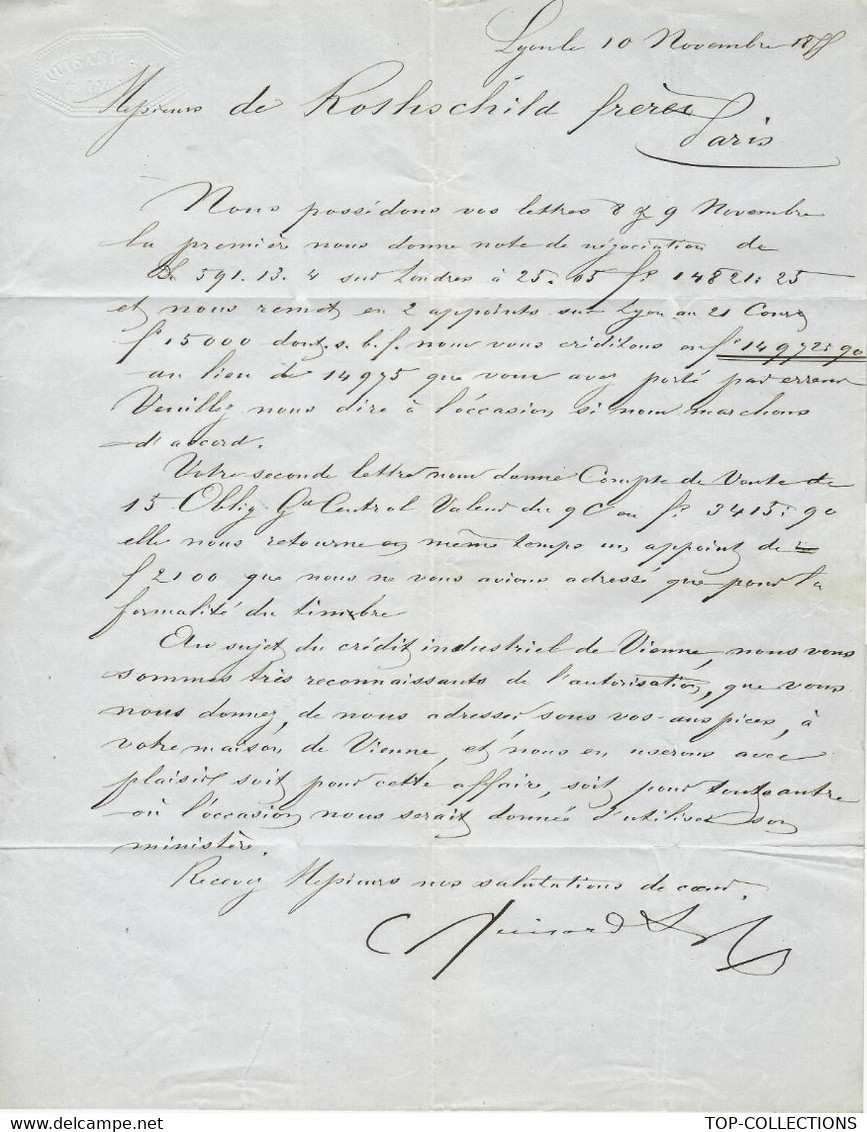 Lyon le 10 Novembre 1855
Messieurs de Rothschild frères
Paris
Nous possédons vos lettres 8 & 9 Novembre
la première nous donne note de négociation de
£ 591.13.4 sur Londres à 25.05 fs 14821:25
et nous remet en 2 appoints sur Lyon au 21 Cour^t
f 15000 dont s. b. f. nous vous créditons en fs 14972:90
au lieu de 14975 que vous avez porté par erreur
Veuillez nous dire à l'occasion, si nous marchons
d'accord.
Votre seconde lettre nous donne Compte de Vente de
15 Oblig. Gd Central Valeur du 9 C en fs 3415:90
elle nous retourne en même temps un appoint de
f 2100 que nous ne vous avions adressé que pour la
formalité du timbre
Au sujet du crédit industriel de Vienne, nous vous
sommes très reconnaissants de l'autorisation, que vous
nous donnez, de nous adresser, sous vos auspices, à
votre maison de Vienne, et nous en userons avec
plaisir soit pour cette affaire, soit pour toute autre
où l'occasion nous serait donnée d'utiliser son
ministère.
Recevez Messieurs nos salutations de cœur.
TOP-COLLECTIONS